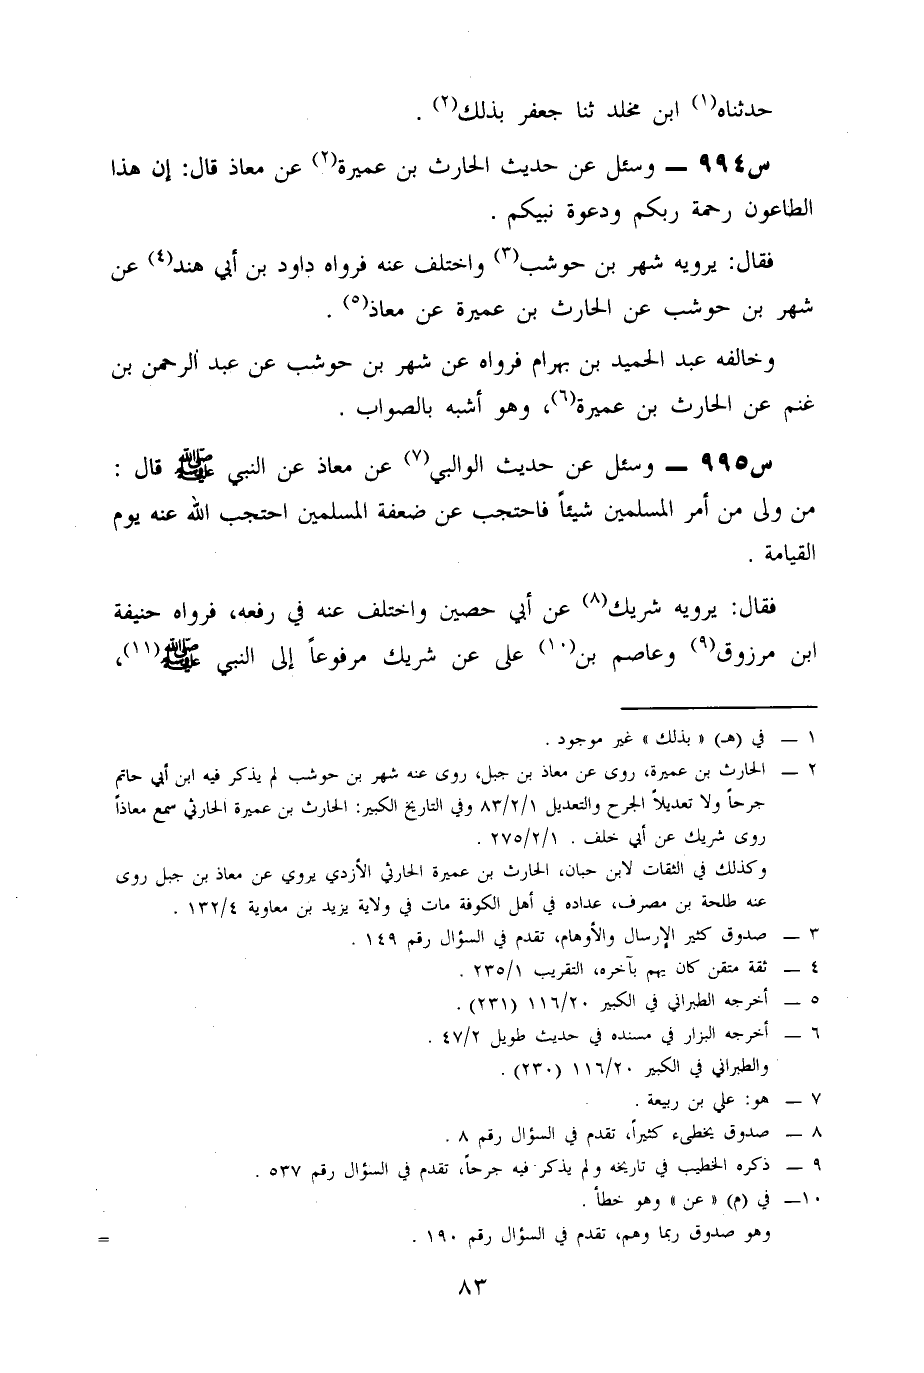 حدثناه(١) ابن مخلد ثنا جعفر بذلك(٢) .
س٩٩٤ ــ وسئل عن حديث الحارث بن عميرة(٢) عن معاذ قال: إن هذا
الطاعون رحمة ربكم ودعوة نبيكم .
فقال: يرويه شهر بن حوشب(٣) واختلف عنه فرواه داود بن أبي هند(٤) عن
شهر بن حوشب عن الحارث بن عميرة عن معاذ(٥) .
وخالفه عبد الحميد بن بهرام فرواه عن شهر بن حوشب عن عبد الرحمن بن
غنم عن الحارث بن عميرة(٦)، وهو أشبه بالصواب .
س٩٩٥ ــ وسئل عن حديث الوالبي(٧) عن معاذ عن النبي ﷺ قال :
من ولى من أمر المسلمين شيئاً فاحتجب عن ضعفة المسلمين احتجب الله عنه يوم
القيامة .
فقال: يرويه شريك(٨) عن أبي حصين واختلف عنه في رفعه، فرواه حنيفة
ابن مرزوق(٩) وعاصم بن(١٠) على عن شريك مرفوعاً إلى النبي ﷺ(١١)،
١ ــ في (هـ) « بذلك » غير موجود .
٢ ــ الحارث بن عميرة، روى عن معاذ بن جبل، روى عنه شهر بن حوشب لم يذكر فيه ابن أبي حاتم
جرحاً ولا تعديلاً الجرح والتعديل ٨٣/٢/١ وفي التاريخ الكبير: الحارث بن عميرة الحارثي سمع معاذاً
روى شريك عن أبي خلف . ٢٧٥/٢/١ .
وكذلك في الثقات لابن حبان، الحارث بن عميرة الحارثي الأزدي يروي عن معاذ بن جبل روى
عنه طلحة بن مصرف، عداده في أهل الكوفة مات في ولاية يزيد بن معاوية ١٣٢/٤ .
٣ ــ صدوق كثير الإرسال والأوهام، تقدم في السؤال رقم ١٤٩ .
٤ ــ ثقة متقن كان يهم بآخره، التقريب ٢٣٥/١ .
٥ ــ أخرجه الطبراني في الكبير ١١٦/٢٠ (٢٣١) .
٦ ــ أخرجه البزار في مسنده في حديث طويل ٤٧/٢ .
والطبراني في الكبير ١١٦/٢٠ (٢٣٠) .
٧ ــ هو: علي بن ربيعة .
٨ ــ صدوق يخطىء كثيراً، تقدم في السؤال رقم ٨ .
٩ ــ ذكره الخطيب في تاريخه ولم يذكر فيه جرحاً، تقدم في السؤال رقم ٥٣٧ .
١٠ــ في (م) « عن » وهو خطأ .
وهو صدوق ربما وهم، تقدم في السؤال رقم ١٩٠ .
=
٨٣